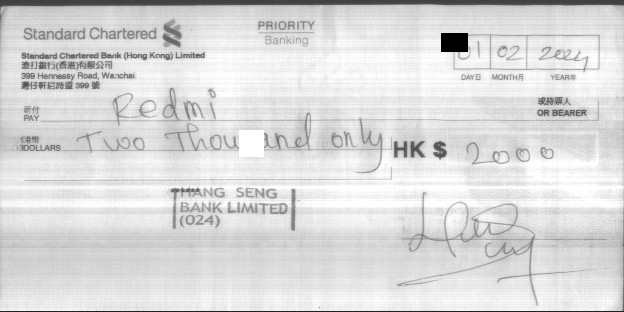 Standard Chartered
PRIORITY
Banking
Standard Chartered Bank (Hong Kong) Limited
渣打銀行(香港)有限公司
399 Hennessy Road, Wanchai
灣仔軒尼詩道 399 號
01 02 2024
DAY日 MONTH月 YEAR年
祈付
PAY
Redmi
或持票人
OR BEARER
港幣
DOLLARS
Two Thou and only
HK $ 2000
HANG SENG
BANK LIMITED
(024)